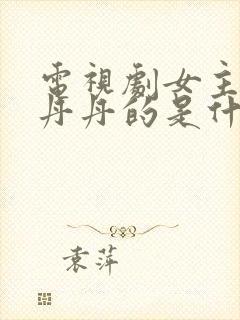 電視劇女主
丹丹的是什
袁萍